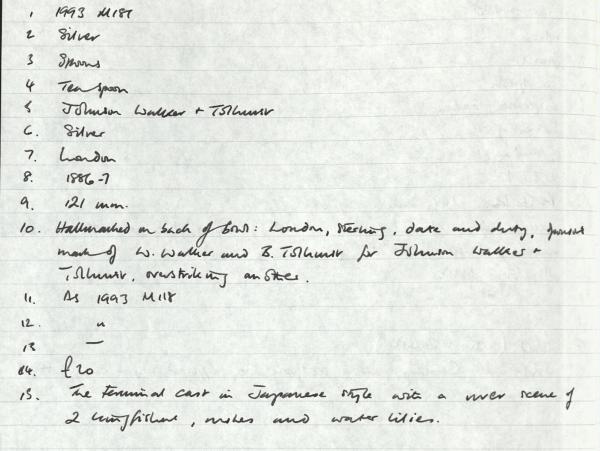 1 1993 M187
2 Silver
3 Spoons
4 Tea spoon
5 Johnson Walker + Tolhurst
6. Silver
7. London
8. 1886-7
9. 121 mm.
10. Hallmarked on back of bowl: London, sterling, date and duty,
mark of W. Walker and B. Tolhurst for Johnson Walker +
Tolhurst, overstriking another.
11. As 1993 M118
12. "
13 —
14. £20
15. The terminal cast in Japanese style with a river scene of
2 kingfishers, rushes and water lilies.